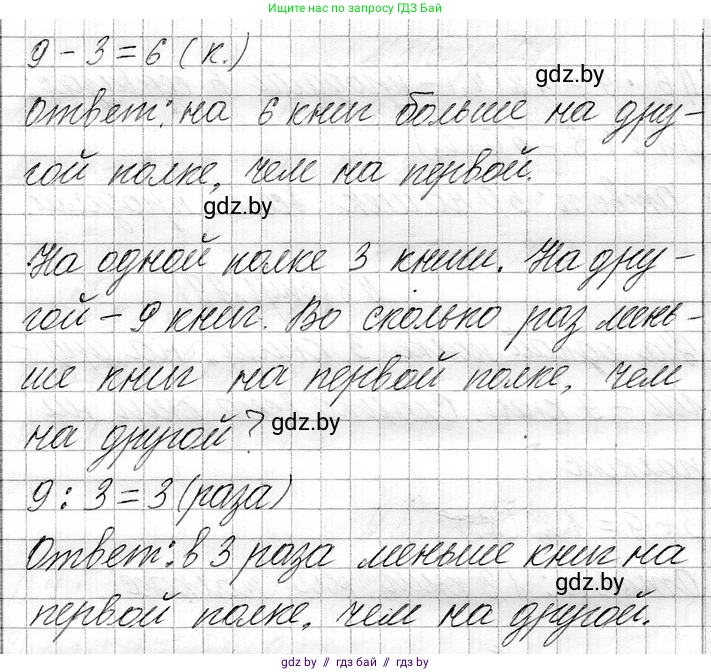 Ищите нас в приложениях по запросу ГДЗ Бай
9 - 3 = 6 (к.)
gdz.by
Ответ: на 6 книг больше на дру-
гой полке, чем на первой.
gdz.by
На одной полке 3 книги. На дру-
гой - 9 книг. Во сколько раз мень-
ше книг на первой полке, чем
на другой?
gdz.by
9 : 3 = 3 (раза)
Ответ: в 3 раза меньше книг на
gdz.by
первой полке, чем на другой.
gdz.by // гдз бай // gdz.by